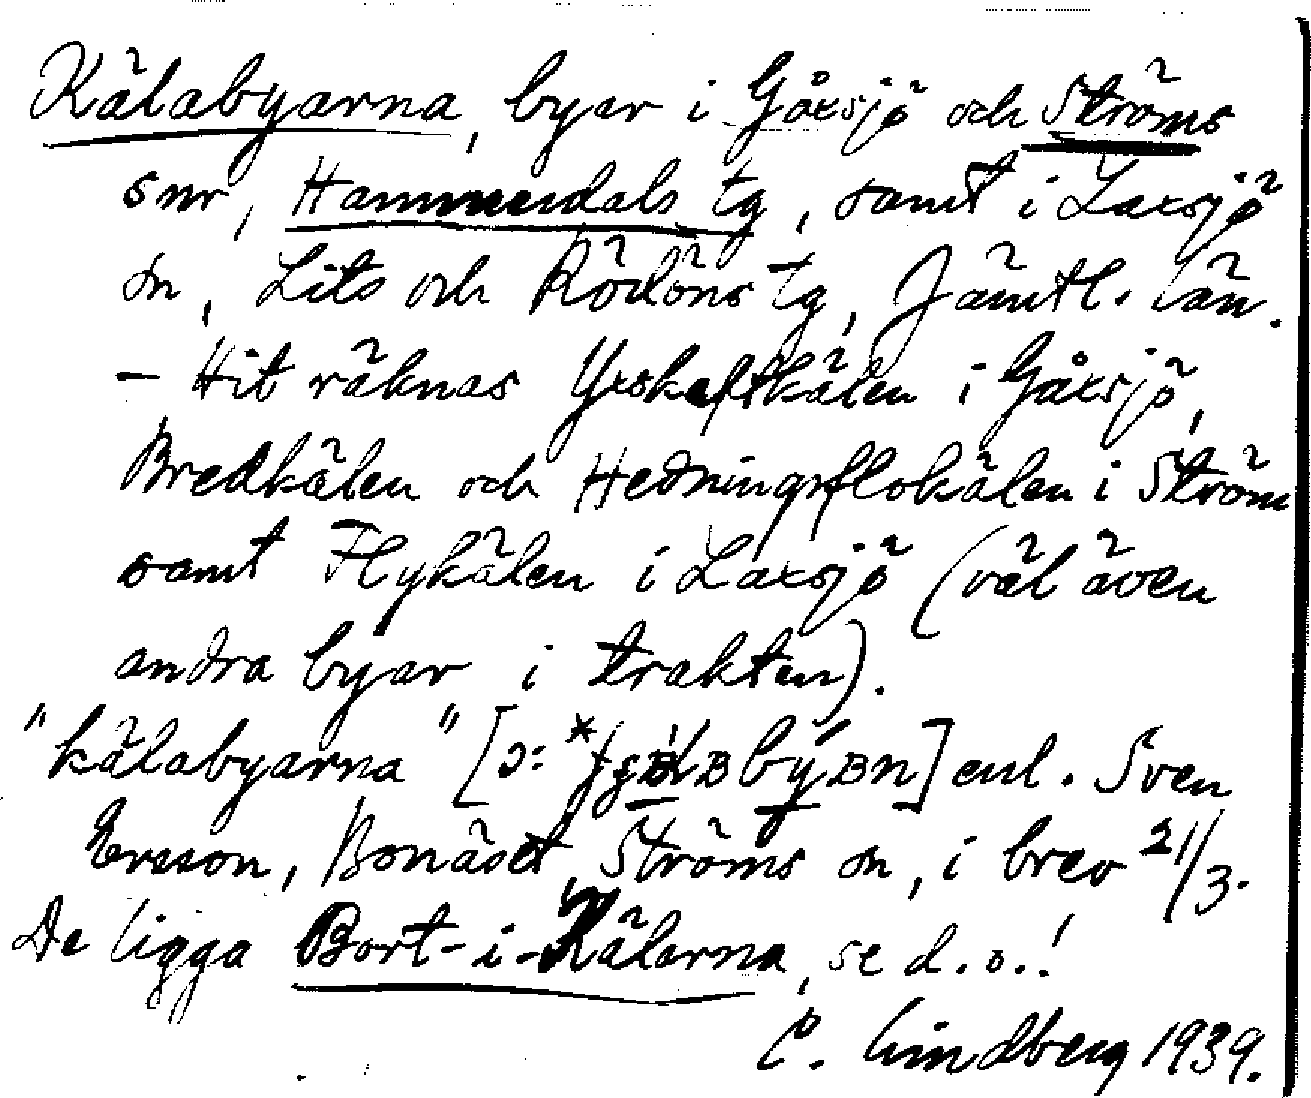 Kälabyarna, byar i Gåxsjö och Ströms
snr, Hammerdals tg, samt i Laxsjö
sn, Lits och Rödöns tg, Jämtl. län.
– Hit räknas Yxskaftkälen i Gåxsjö,
Bredkälen och Hedningsflokälen i Ström
samt Flykälen i Laxsjö (väl även
andra byar i trakten).
"kälabyarna" [ɔ: enl. Sven
Ersson, Bonäset, Ströms sn, i brev 21/3.
De ligga Bort-i-Kälarna, se d. o.!
C. Lindberg 1939.